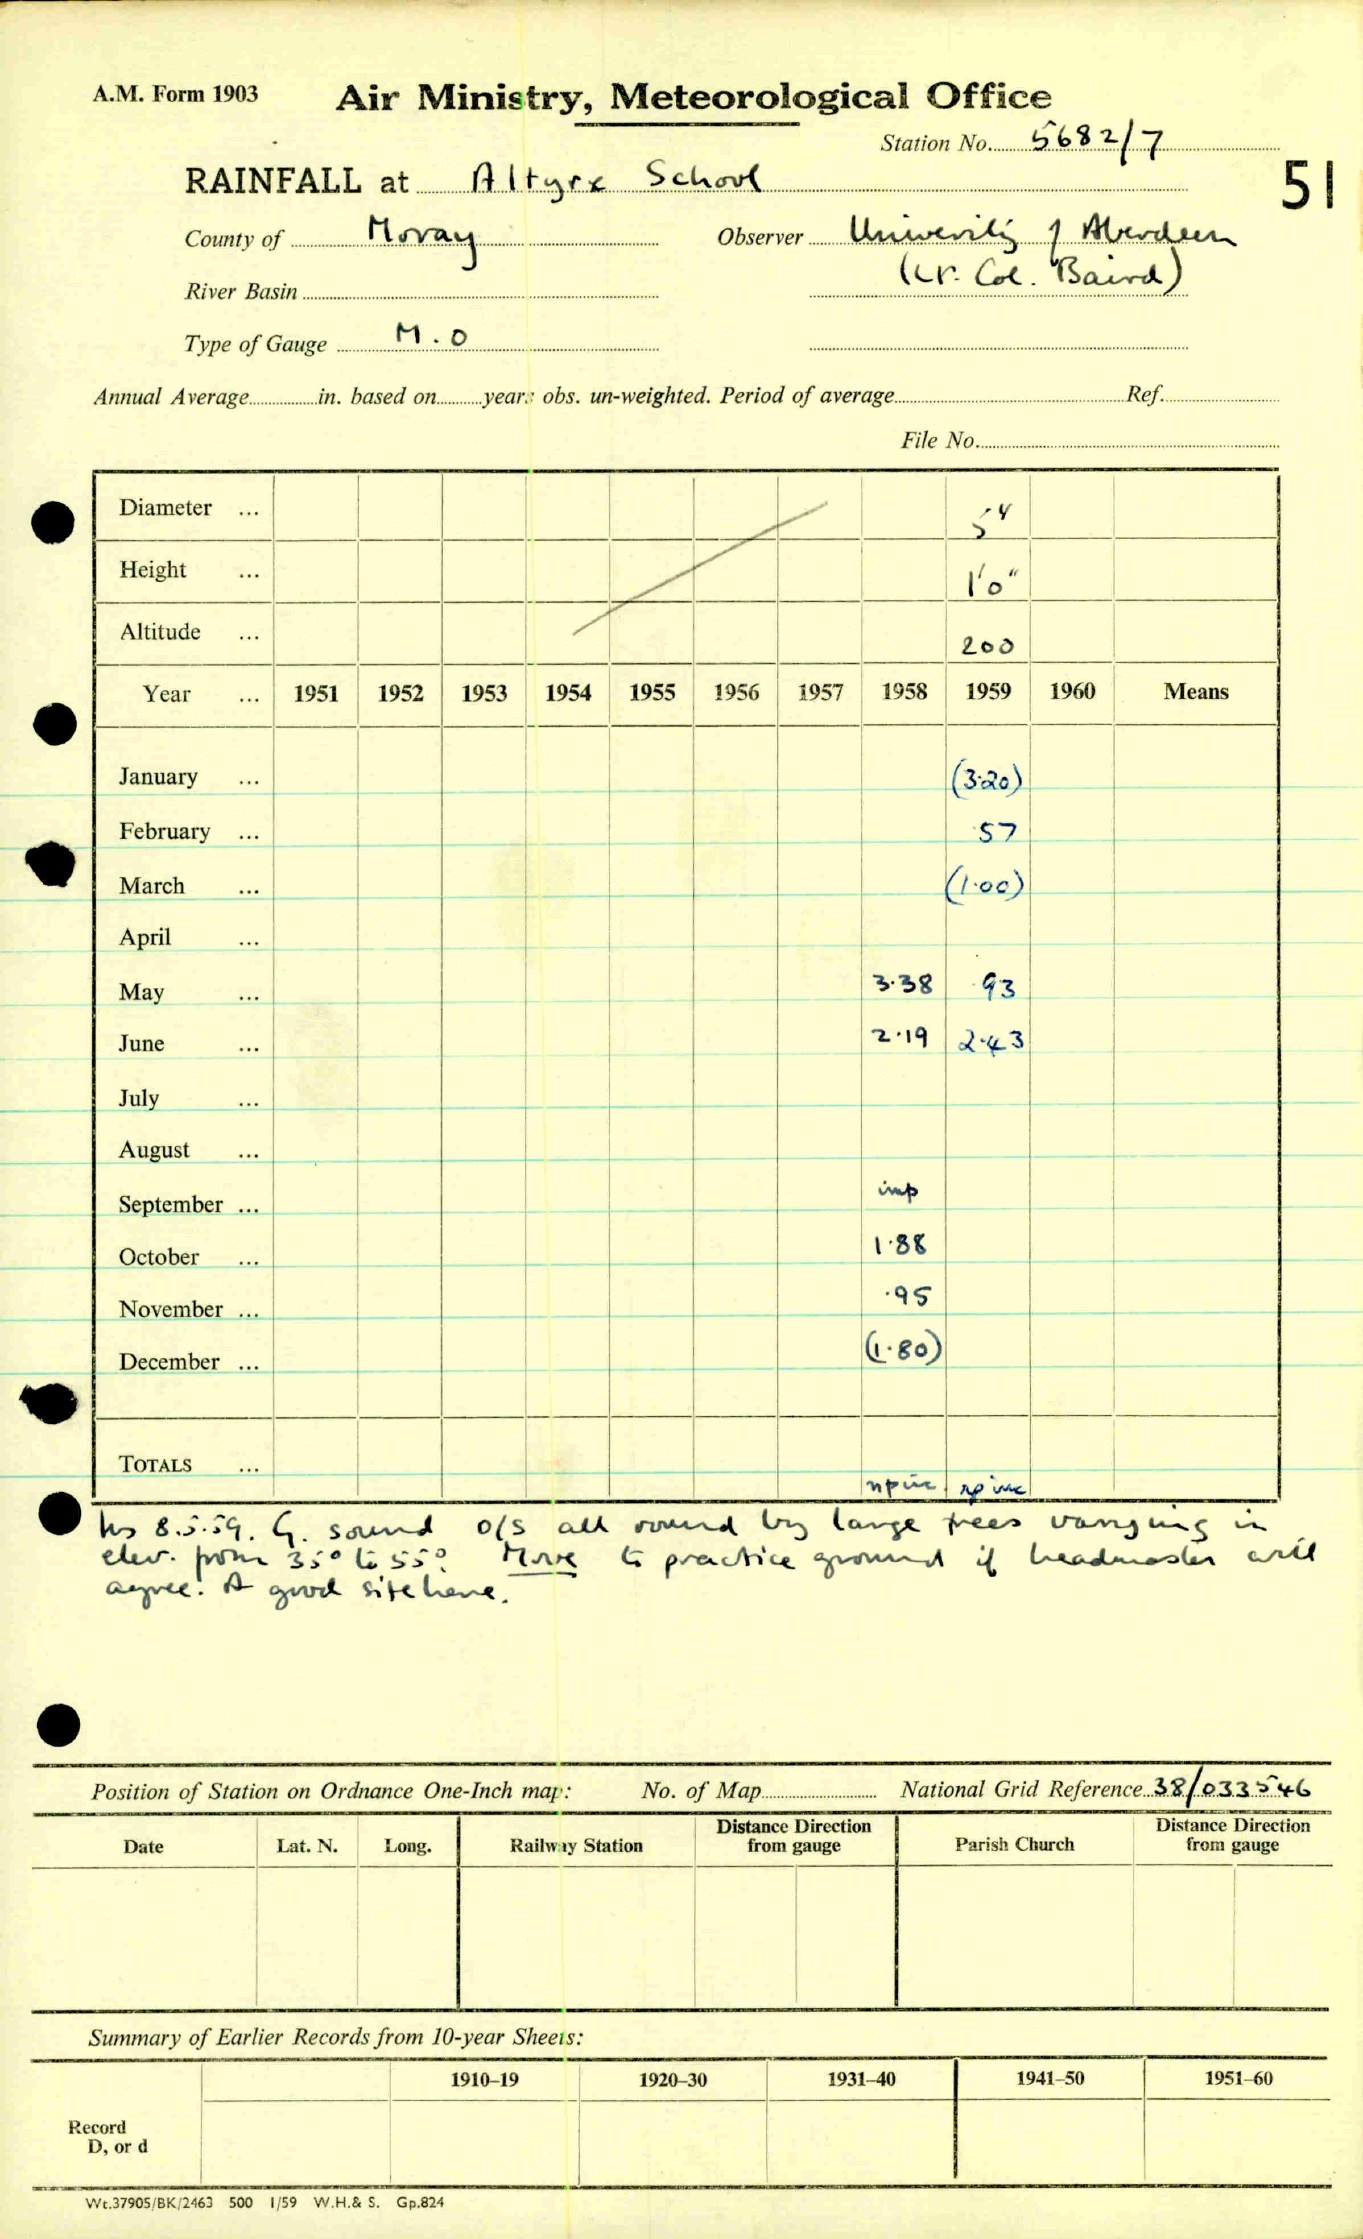 A.M. Form 1903 Air Ministry, Meteorological Office
Station No. 5682/7
51
RAINFALL at Altyre School
County of Moray Observer University of Aberdeen
(Lt. Col. Baird)
River Basin
Type of Gauge M.O
Annual Average in. based on years obs. un-weighted. Period of average Ref.
File No.
Diameter ... 5"
Height ... 1'0"
Altitude ... 200
Year ... 1951 1952 1953 1954 1955 1956 1957 1958 1959 1960 Means
January ... (3.20)
February ... .57
March ... (1.00)
April ...
May ... 3.38 .93
June ... 2.19 2.43
July ...
August ...
September ... imp
October ... 1.88
November ... .95
December ... (1.80)
TOTALS ...
Ins 8.5.59. G. sound o/s all round by large trees varying in
elev. from 35° to 55°. Move to practice ground if headmaster will
agree. A good site here.
Position of Station on Ordnance One-Inch map: No. of Map National Grid Reference 38/033546
Date Lat. N. Long. Railway Station Distance Direction from gauge Parish Church Distance Direction from gauge
Summary of Earlier Records from 10-year Sheets:
1910–19 1920–30 1931–40 1941–50 1951–60
Record
D, or d
Wt.37905/BK/2463 500 1/59 W.H.& S. Gp.824